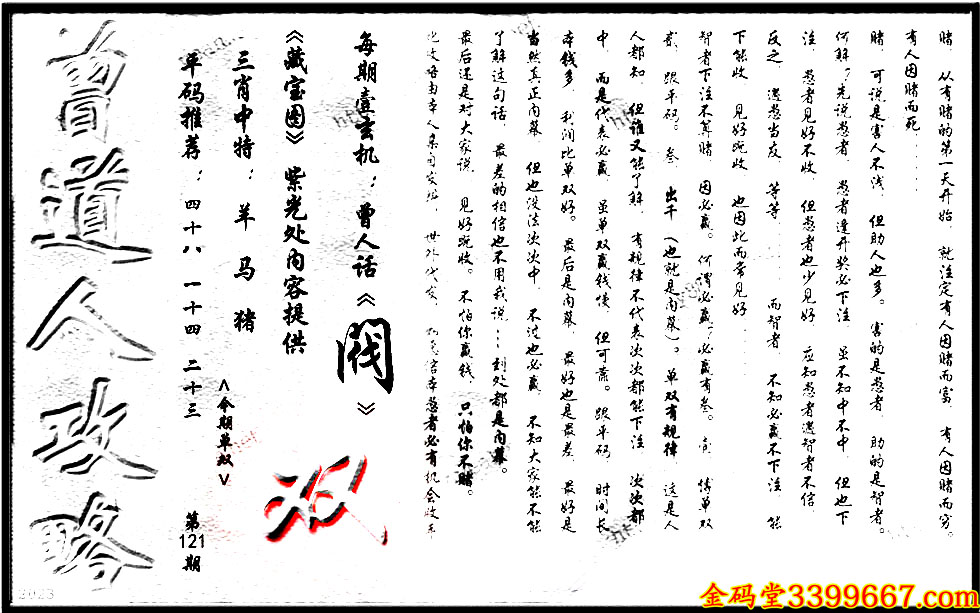 赌，从有赌的第一天开始，就注定有人因赌而富，有人因赌而穷。
有人因赌而死......
赌，可说是害人不浅，但助人也多。害的是愚者，助的是智者。
何解？先说愚者，愚者逢开奖必下注，虽不知中不中，但也下
注，愚者见好不收，但愚者也少见好，应知愚者遇智者不信
反之，遇愚当友，等等......而智者，不知必赢不下注，能
下能收，见好就收，也因此而常见好......
智者下注不算赌，因必赢。何谓必赢？必赢有叁。壹，博单双
贰，跟平码。叁，出千（也就是内幕）。单双有规律，这是人
人都知，但谁又能了解，有规律不代表次次都能下注，次次都
中，而是代表必赢，虽单双赢钱慢，但可靠。跟平码，时间长
本钱多，利润比单双好。最后是内幕，最好也是最差，最好是
当然真正内幕，但也没法次次中，不过也必赢，不知大家能不能
了解这句话，最差的相信也不用我说...到处都是内幕。
最后还是对大家说，见好就收。不怕你赢钱，只怕你不赌。
每期壹玄机：曾人话《阀》
《藏宝图》紫光处内容提供
三肖中特：羊 马 猪
平码推荐：四十八 一十四 二十三
<今期单双>
双
第121期
曾道人攻略
2023
金码堂3399667.com